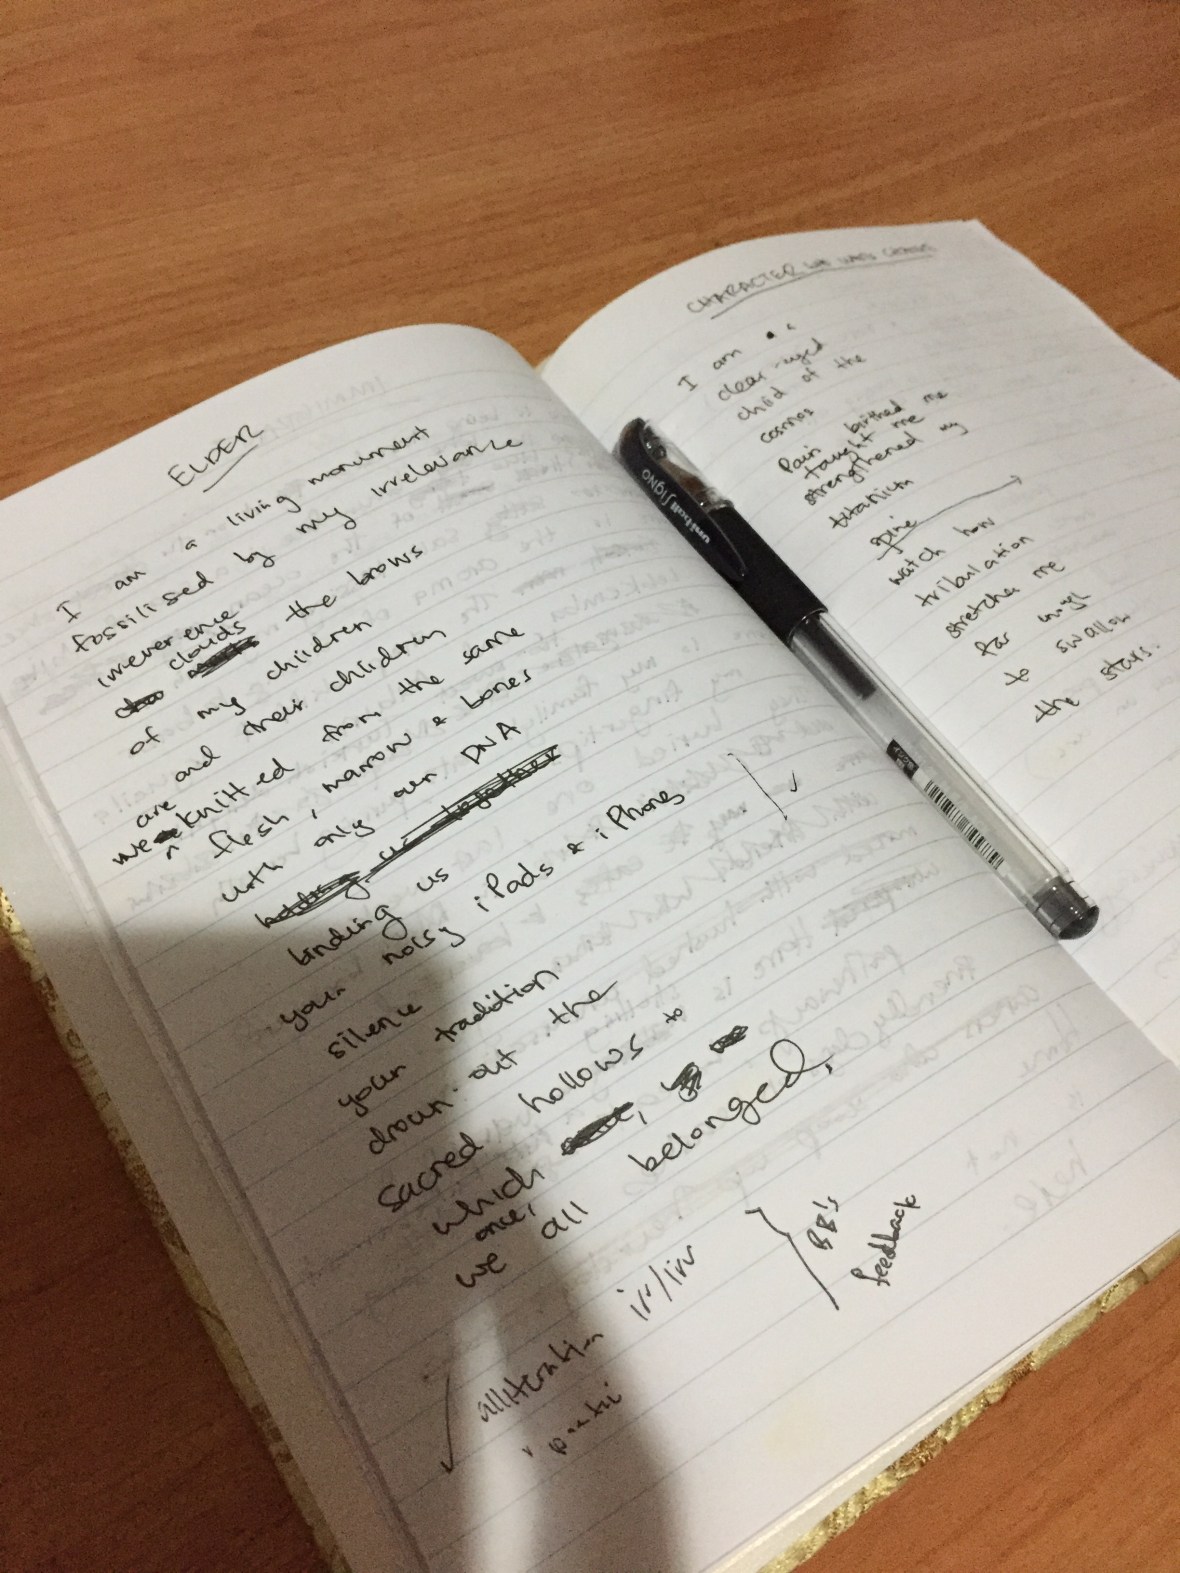 ELDER
I am a living monument
fossilised by my irrelevance
irreverence
clouds the brows
of my children
and their children
are knitted from the same
we
flesh, marrow & bones
with only our DNA
holding us together
binding us
your noisy iPads & iPhones
silence
your tradition.
drown out the
sacred hollows to
which
once,
we all belonged.
alliteration irr/irr
BB's
feedback
CHARACTER WHO
I am a
clear-eyed
child of the
cosmos
Pain birthed me
taught me
strengthened my
titanium
spine
watch how
tribulation
stretches me
far enough
to swallow
the stars.
uni-ball SigNo